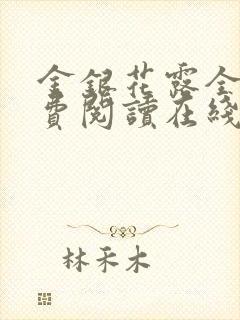 金銀花露全
費閱讀在綫
林禾木